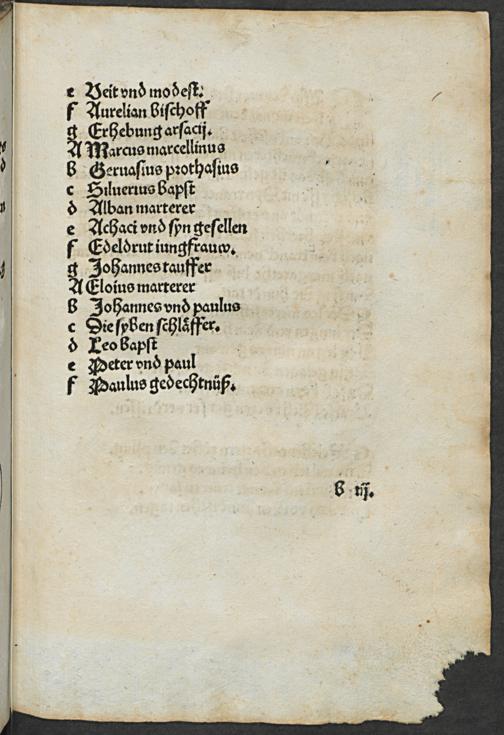 e Veit vnd modest.
f Aurelian bischoff
g Erhebung arsacij.
A Marcus marcellinus
b Geruasius prothasius
c Siluerius bapst
d Alban marterer
e Achaci vnd syn gesellen
f Edeldrut iungfrauw.
g Johannes tauffer
A Eloius marterer
b Johannes vnd paulus
c Die syben schläffer.
d Leo bapst
e Peter vnd paul
f Paulus gedechtnüß.
b iij.